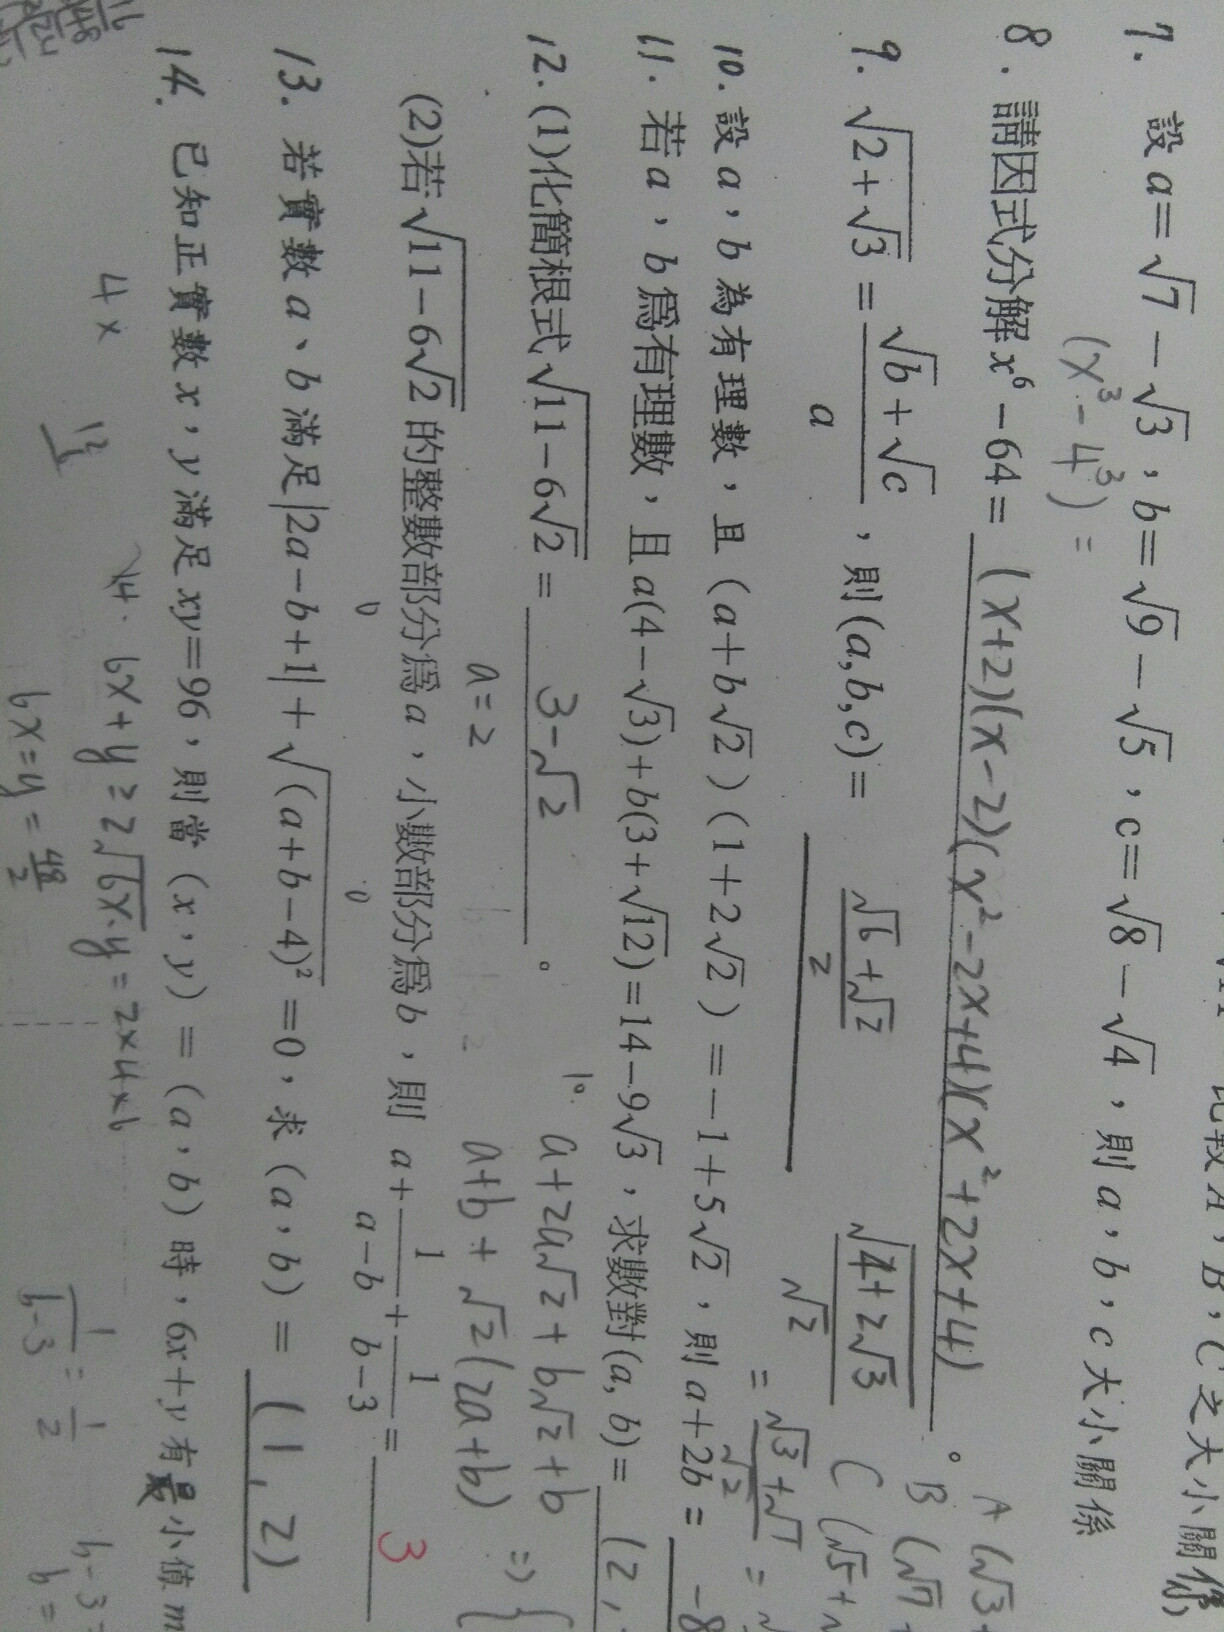 比較A,B,C之大小關係
7. 設a=√7-√3,b=√9-√5,c=√8-√4,則a,b,c大小關係
(x³-4³)=
8. 請因式分解x⁶-64= (x+2)(x-2)(x²-2x+4)(x²+2x+4) 。
A (√3+
B (√7+
C (√5+√
9. √(2+√3) = (√b+√c)/a ,則(a,b,c)= (√6+√2)/2
√(4+2√3)/√2
= (√3+√1)/√2 =
10. 設a,b為有理數,且(a+b√2)(1+2√2)=-1+5√2,則a+2b= -8
11. 若a,b為有理數,且a(4-√3)+b(3+√12)=14-9√3,求數對(a,b)= (2,
12. (1)化簡根式√(11-6√2) = 3-√2 。
10. a+2a√2+b√2+b
a=2
a+b+√2(2a+b) ⇒{
(2)若√(11-6√2)的整數部分為a,小數部分為b,則 a+1/(a-b)+1/(b-3)= 3
0 0
13. 若實數a、b滿足|2a-b+1|+√((a+b-4)²)=0,求(a,b)= (1,2)
14. 已知正實數x,y滿足xy=96,則當(x,y)=(a,b)時,6x+y有最小值m
4x 12
14. 6x+y≥2√(6x·y)=2×4×6
6x=y=48/2
1/(b-3)=1/2
b-3=
b=